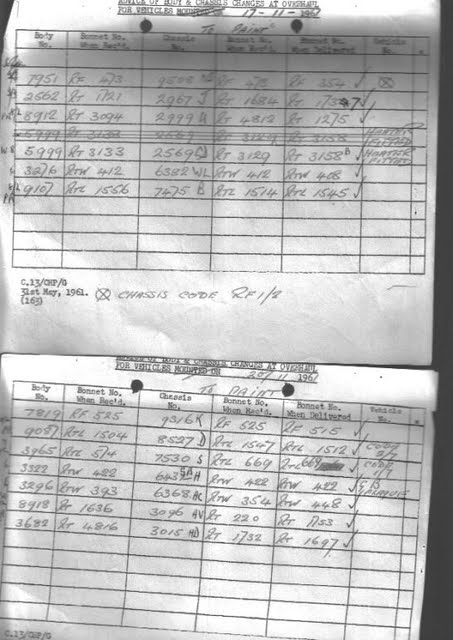 ADVICE OF BODY & CHASSIS CHANGES AT OVERHAUL
FOR VEHICLES MOUNTED ON 17-11-1962
TO PAINT
Body No. Bonnet No. When Rec'd. Chassis No. Bonnet No. When Rec'd. Bonnet No. When Delivered Vehicle No.
7951 RF 473 9508 RF 473 RF 354 ✓ ⊗
2562 RT 1721 2967 J RT 1684 RT 1737 ✓
8912 RT 3094 2999 RT 4812 RT 1275 ✓
5999 RT 3133 2569 RT 3129 RT 3158 HEATERS FITTED
5999 RT 3133 2569 RT 3129 RT 3158 B ✓ HEATERS FITTED
3276 RTW 412 6382 WL RTW 412 RTW 408 ✓
9107 RTL 1556 7475 B RTL 1514 RTL 1545 ✓
C.13/CHP/G
31st May, 1961.
(163)
⊗ CHASSIS CODE RF1/2
ADVICE OF BODY & CHASSIS CHANGES AT OVERHAUL
FOR VEHICLES MOUNTED ON 20/11 196
TO PAINT
Body No. Bonnet No. When Rec'd. Chassis No. Bonnet No. When Rec'd. Bonnet No. When Delivered Vehicle No.
7819 RF 525 9316 K RF 525 RF 515 ✓
9087 RTL 1504 8527 D RTL 1547 RTL 1512 ✓ CODE
3965 RTL 514 7530 S RTL 669 RTL 669 ✓ CODE
3322 RTW 422 H RTW 422 RTW 422 ✓
3296 RTW 393 6368 AC RTW 354 RTW 448 ✓
8918 RT 1636 3096 AV RT 220 RT 1753 ✓
3682 RT 4816 3015 HD RT 1732 RT 1697 ✓
C.13/CHP/G